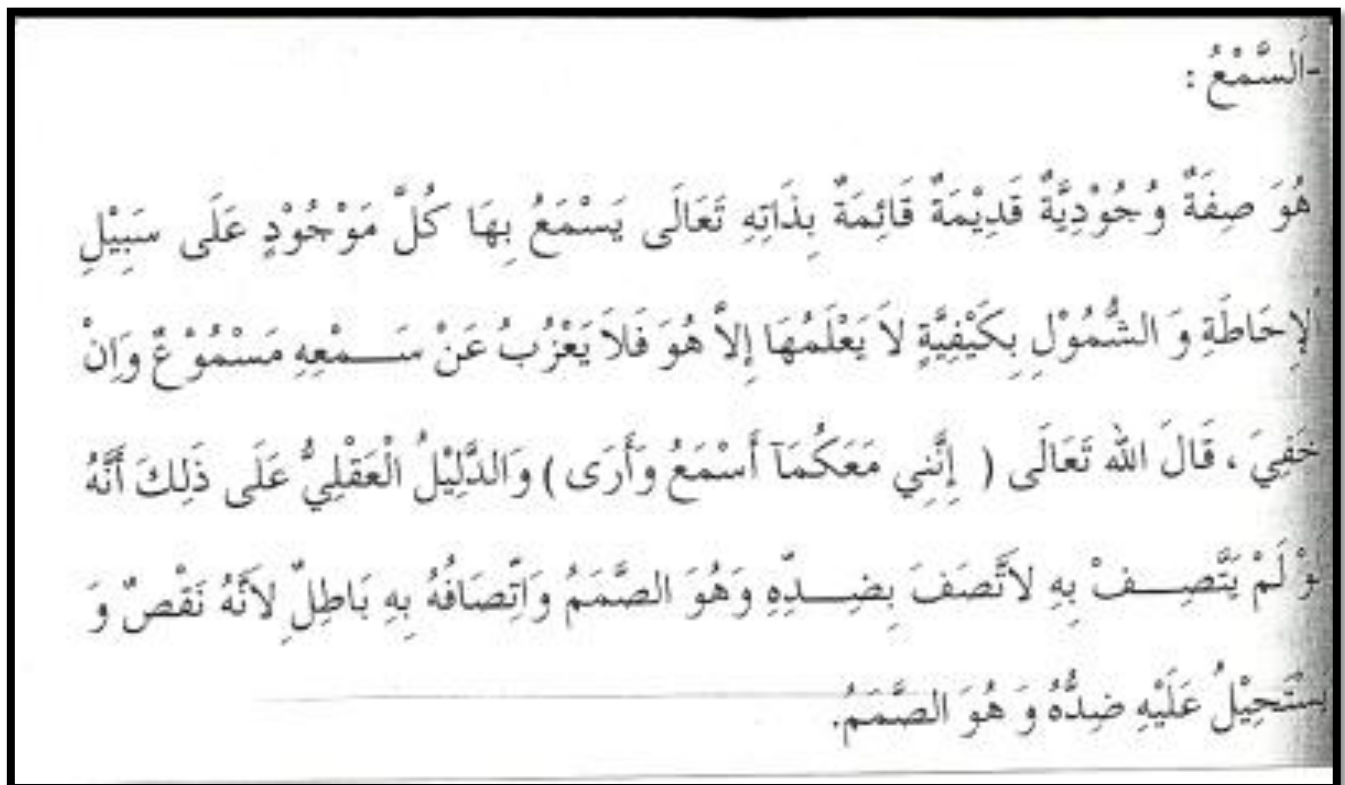 -اَلسَّمْعُ :
هُوَ صِفَةٌ وُجُوْدِيَّةٌ قَدِيْمَةٌ قَائِمَةٌ بِذَاتِهِ تَعَالَى يَسْمَعُ بِهَا كُلَّ مَوْجُوْدٍ عَلَى سَبِيْلِ
الْإِحَاطَةِ وَ الشُّمُوْلِ بِكَيْفِيَّةٍ لاَ يَعْلَمُهَا إِلاَّ هُوَ فَلاَ يَعْزُبُ عَنْ سَـــمْعِهِ مَسْمُوْعٌ وَاِنْ
خَفِيَ ، قَالَ الله تَعَالَى ( إِنَّنِي مَعَكُمَآ أَسْمَعُ وَأَرَى ) وَالدَّلِيْلُ الْعَقْلِيُّ عَلَى ذَلِكَ أَنَّهُ
لَوْ لَمْ يَتَّصِـــفْ بِهِ لاَتَّصَفَ بِضِـــدِّهِ وَهُوَ الصَّمَمُ وَاتِّصَافُهُ بِهِ بَاطِلٌ لِاَنَّهُ نَقْصٌ وَ
يَسْتَحِيْلُ عَلَيْهِ ضِدُّهُ وَ هُوَ الصَّمَمُ.